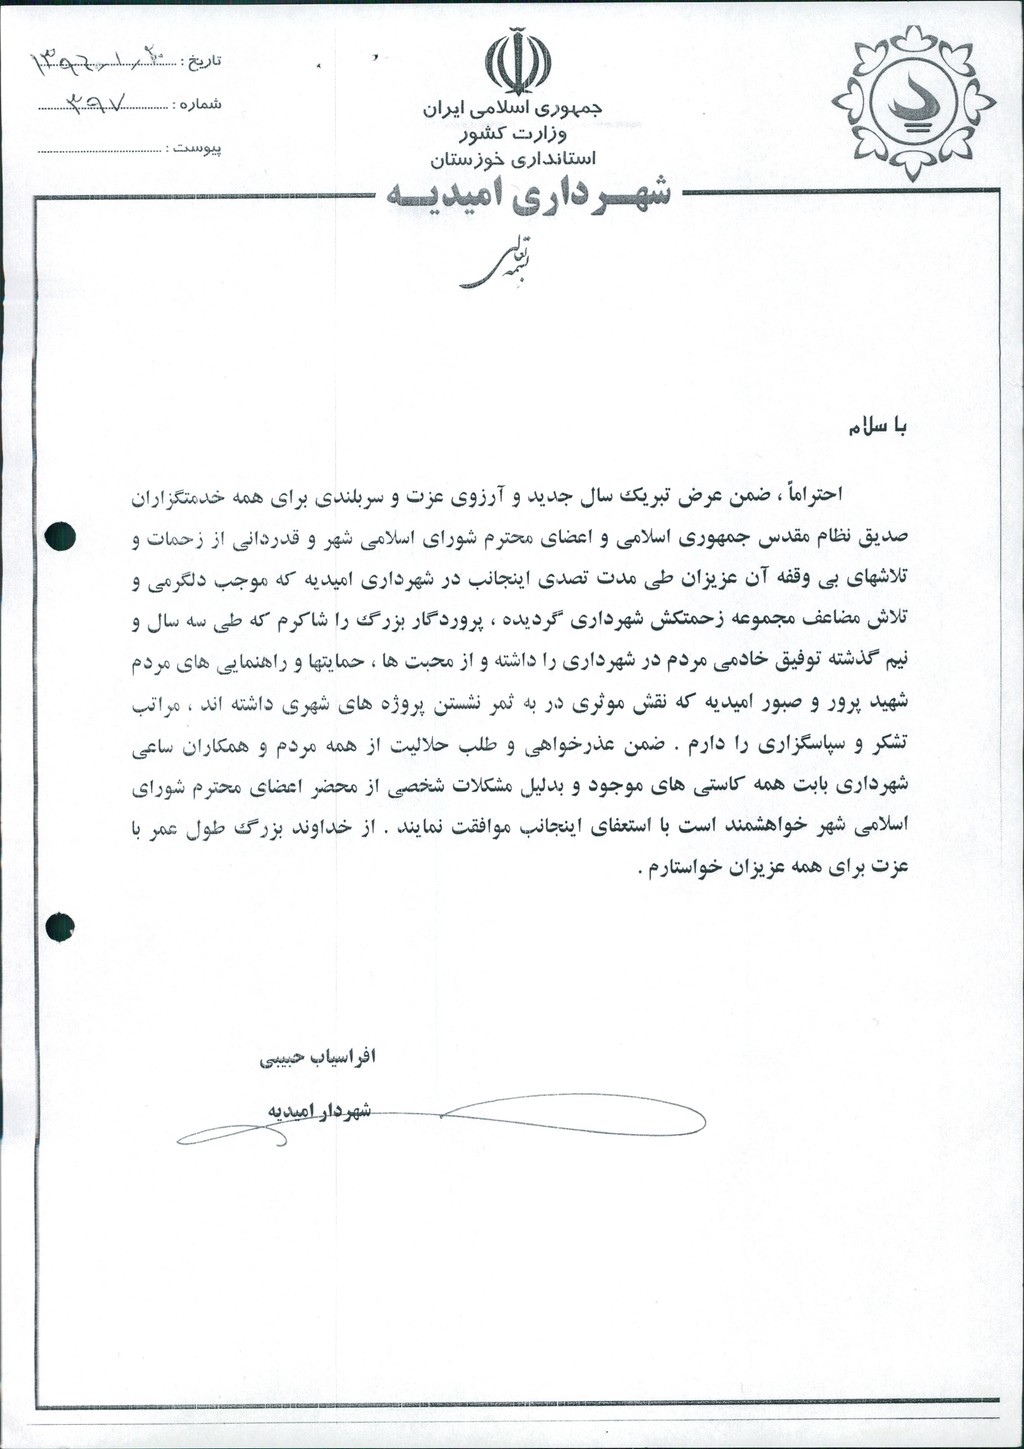 جمهوری اسلامی ایران
وزارت کشور
استانداری خوزستان
شهرداری امیدیه
تاریخ : ۱۳۹۶/۱/۲۰
شماره : ۳۹۷
پیوست :
بسمه تعالی
با سلام
احتراماً ، ضمن عرض تبریک سال جدید و آرزوی عزت و سربلندی برای همه خدمتگزاران
صدیق نظام مقدس جمهوری اسلامی و اعضای محترم شورای اسلامی شهر و قدردانی از زحمات و
تلاشهای بی وقفه آن عزیزان طی مدت تصدی اینجانب در شهرداری امیدیه که موجب دلگرمی و
تلاش مضاعف مجموعه زحمتکش شهرداری گردیده ، پروردگار بزرگ را شاکرم که طی سه سال و
نیم گذشته توفیق خادمی مردم در شهرداری را داشته و از محبت ها ، حمایتها و راهنمایی های مردم
شهید پرور و صبور امیدیه که نقش موثری در به ثمر نشستن پروژه های شهری داشته اند ، مراتب
تشکر و سپاسگزاری را دارم . ضمن عذرخواهی و طلب حلالیت از همه مردم و همکاران ساعی
شهرداری بابت همه کاستی های موجود و بدلیل مشکلات شخصی از محضر اعضای محترم شورای
اسلامی شهر خواهشمند است با استعفای اینجانب موافقت نمایند . از خداوند بزرگ طول عمر با
عزت برای همه عزیزان خواستارم .
افراسیاب حبیبی
شهردار امیدیه